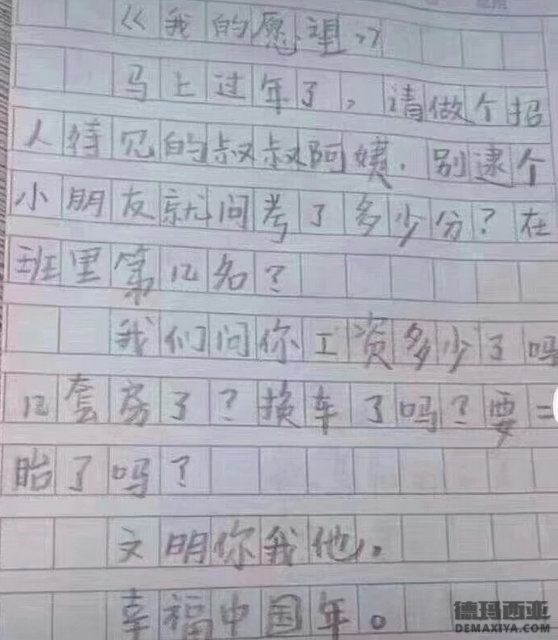 《我的愿望》
马上过年了，请做个招
人待见的叔叔阿姨．别逮个
小朋友就问考了多少分？在
班里第几名？
我们问你工资多少了吗
几套房了？换车了吗？要二
胎了吗？
文明你我他。
幸福中国年。
德玛西亚
DEMAXIYA.COM